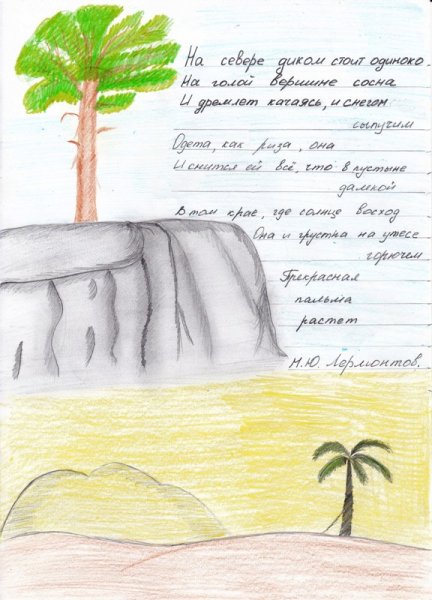 На севере диком стоит одиноко.
На голой вершине сосна
И дремлет качаясь, и снегом
сыпучим
Одета, как риза, она
И снится ей всё, что в пустыне
далекой
В том крае, где солнце восход
Она и грустна на утесе
горючем
Прекрасная
пальма
растет
М.Ю. Лермонтов.